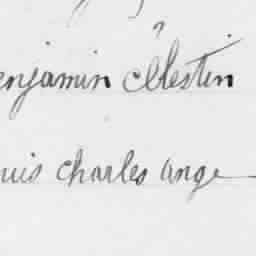 enjamin célestin
uis charles ange